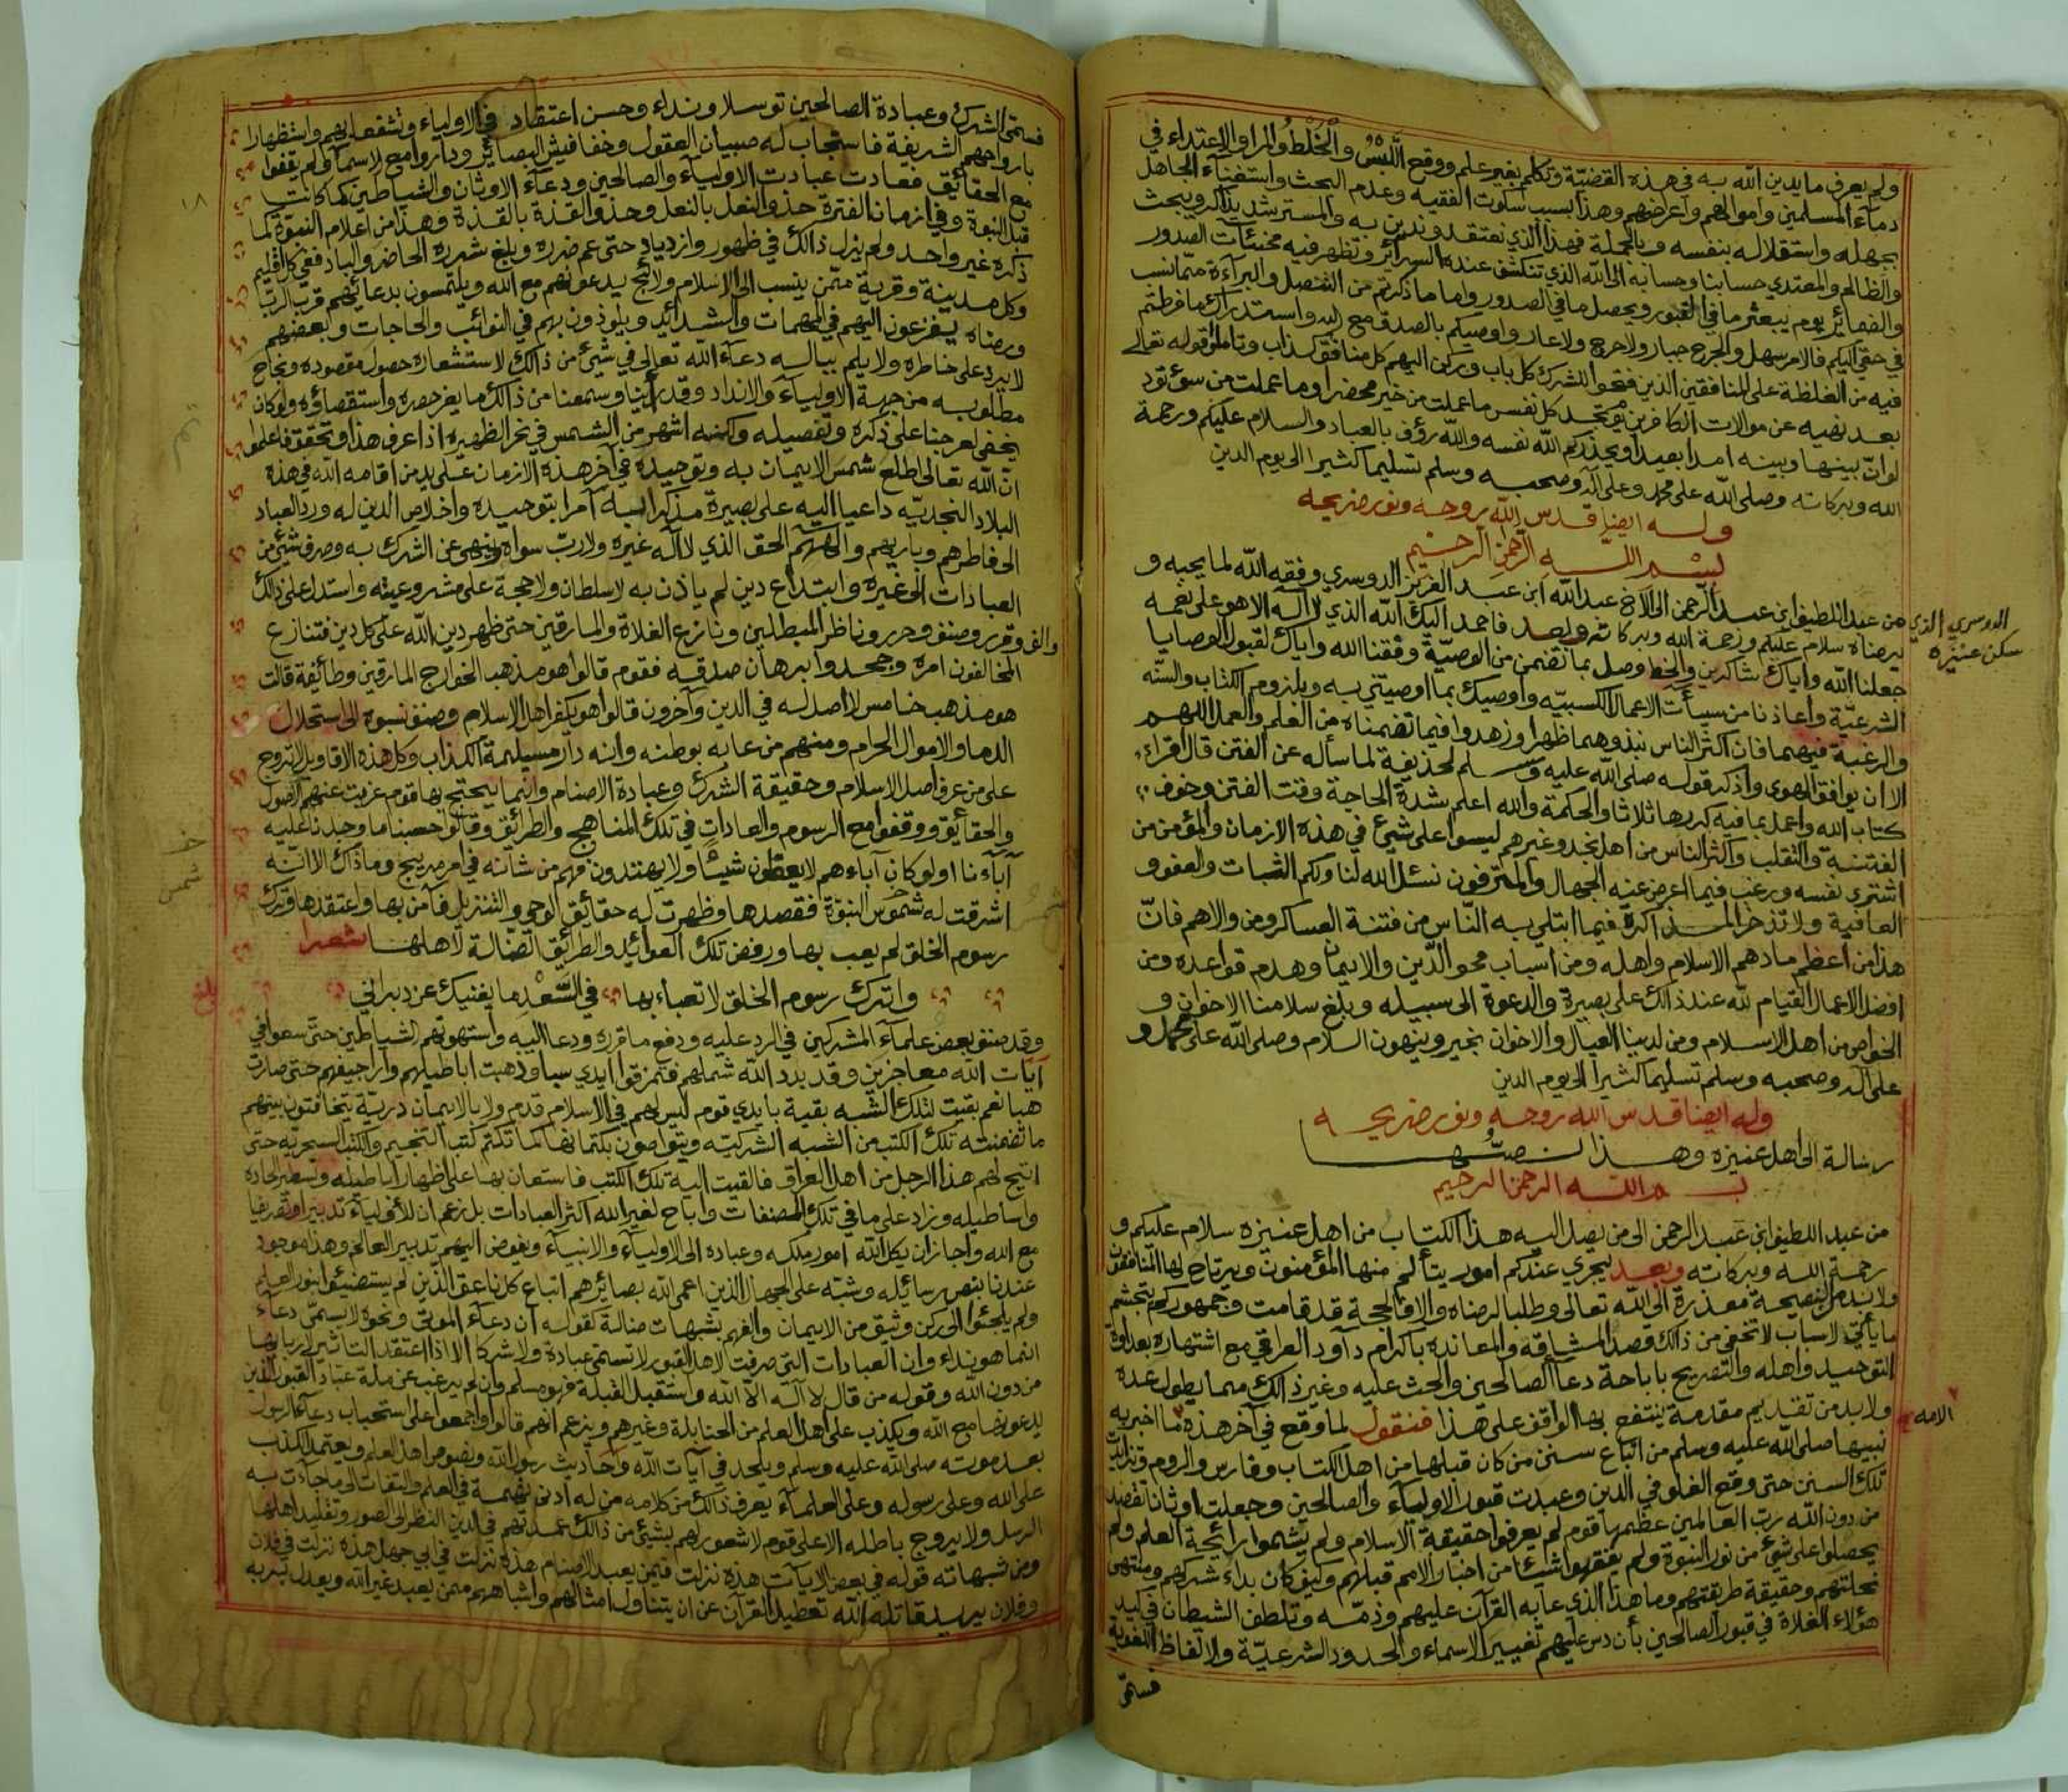 ولم يعرف ما يدين الله به في هذه القضيّة وتكلم بغير علم ووقع اللبس والخلط والمرا والاعتداء في
دمآء المسلمين واموالهم واعراضهم وهذا بسبب سكوت الفقيه وعدم البحث واستغنآء الجاهل
بجهله واستقلاله بنفسه وبالجملة فهذا الذي نعتقد وندين به والمسترشد يذاكر ويبحث
والظالم والمعتدي حسابنا وحسابه الى الله الذي تنكشف عنده السرائر وتظهر فيه مخبئآت الصدور
والضمائر يوم يبعثر ما في القبور ويحصل ما في الصدور واما ما ذكرتم من التنصل والبرآءة ممّا نسب
في حقي اليكم فالامر سهل والجرح جبار ولا حرج ولا عار واوصيكم بالصدق مع الله واستدراك ما فرطتم
فيه من الغلظة على المنافقين الذين فتحوا للشرك كل باب وركن اليهم كل منافق كذاب وتاملوا قوله تعالى
بعد نهيه عن موالات الكافرين يوم تجد كل نفس ما عملت من خير محضرا وما عملت من سوء تود
لو انّ بينها وبينه امدا بعيدا ويحذركم الله نفسه والله رؤف بالعباد والسلام عليكم ورحمة
الله وبركاته وصلى الله على محمد وعلى آله وصحبه وسلم تسليما كثيرا الى يوم الدين
وله ايضا قدس الله روحه ونور ضريحه
بسم الله الرحمن الرحيم
من عبد اللطيف ابن عبد الرحمن الى الاخ عبد الله ابن عبد العزيز الدوسري وفقه الله لما يحبه و
الدوسري الذي
سكن عنيزه
يرضاه سلام عليكم ورحمة الله وبركاته وبعد فاحمد اليك الله الذي لا اله الا هو على نعمه
جعلنا الله واياك شاكرين والخط وصل بما تضمن من الوصيّة وفقنا الله واياك لقبول الوصايا
الشرعيّة واعاذنا من سيآت الاعمال الكسبيّه واوصيك بما اوصيتني به وبلزوم الكتاب والسنّه
والرغبة فيهما فان اكثر الناس نبذوهما ظهرا وزهدوا فيما تضمناه من العلم والعمل اللهم
الا ان يوافق الهوى واذكر قوله صلى الله عليه وسلم لحذيفة لما سأله عن الفتن قال اقراء
كتاب الله واعمل بما فيه كررها ثلاثا والحكمة والله اعلم بشدة الحاجة وقت الفتن وخوف
الفتنة والتقلب واكثر الناس من اهل نجد وغيرهم ليسوا على شيء في هذه الازمان والمؤمن من
اشترى نفسه ورغب فيما اعرض عنه الجهال والمترفون نسئل الله لنا ولكم الثبات والعفو و
العافية ولا تذخر المذاكرة فيما ابتلي به النّاس من فتنة العساكر ومن والاهم فانّ
هذا من اعظم ما دهم الاسلام واهله ومن اسباب محو الدّين والايمان وهدم قواعده ومن
افضل الاعمال القيام لله عند ذالك على بصيرة والدعوة الى سبيله وبلغ سلامنا الاخوان و
الخواص من اهل الاسلام ومن لدينا العيال والاخوان بخير وينهون السلام وصلى الله على محمد و
على آله وصحبه وسلم تسليما كثيرا الى يوم الدين
وله ايضا قدس الله روحه ونور ضريحه
رسالة الى اهل عنيزه وهذا نصّها
بسم الله الرحمن الرحيم
من عبد اللطيف ابن عبد الرحمن الى من يصل اليه هذا الكتاب من اهل عنيزه سلام عليكم و
رحمة الله وبركاته وبعد ليجري عندكم امور يتألم منها المؤمنون ويرتاح لها المنافقون
ولا بد من النصيحة معذرة الى الله تعالى وطلبا لرضاه والا فالحجة قد قامت وجمهوركم يتجشم
ما يأتي لاسباب لا تخفى من ذالك قصد المشاقة والمعانده باكرام داود العراقي مع اشتهاره بعداوة
التوحيد واهله والتصريح باباحة دعآ الصالحين والحث عليه وغير ذالك مما يطول عده
ولا بد من تقديم مقدمة ينتفع بها الواقف على هذا فنقول لما وقع في آخر هذه ما اخبر به
الامه
نبيها صلى الله عليه وسلم من اتباع سنن من كان قبلها من اهل الكتاب وفارس والروم وتزايدت
تلك السنن حتى وقع الغلو في الدين وعبدت قبور الاوليآء والصالحين وجعلت اوثانا تقصد
من دون الله رب العالمين عظمها قوم لم يعرفوا حقيقة الاسلام ولم يشموا رائحة العلم ولم
يحصلوا على شيء من نور النبوة ولم يفقهوا شيئا من اخبار الامم قبلهم وكيف كان بداء شركهم ومنتهى
نحلتهم وحقيقة طريقتهم وما هذا الذي عابه القرآن عليهم وذمّه وتلطف الشيطان في كيد
هؤلاء الغلاة في قبور الصالحين بأن دس عليهم تغيير الاسماء والحدود الشرعيّة والالفاظ اللغوية
فسمّى
فسمّى الشرك وعبادة الصالحين توسلا ونداء وحسن اعتقاد في الاولياء وتشفعا بهم واستظهارا
بارواحهم الشريفة فاستجاب له صبيان العقول وخفافيش البصائر وداروا مع الاسماء ولم يقفوا
مع الحقائق فعادت عبادت الاوليآء والصالحين ودعآء الاوثان والشياطين كما كانت
قبل النبوة وفي ازمان الفترة حذو النعل بالنعل وحذو القذة بالقذة وهذا من اعلام النبوة كما
ذكره غير واحد ولم يزل ذالك في ظهور وازدياد حتى عم ضرره وبلغ شرره الحاضر والباد ففي كل اقليم
وكل مدينة وقرية ممّن ينسب الى الاسلام ولائج يدعونهم مع الله ويلتمسون بدعائهم قرب الربّ
ورضاه يفزعون اليهم في المهمات والشدائد ويلوذون بهم في النوائب والحاجات وبعضهم
لا يرد على خاطره ولا يلم بباله دعآء الله تعالى في شيئ من ذالك لاستشعاره حصول مقصوده ونجاح
مطلوبه من جهة الاوليآء والانداد وقد رأينا وسمعنا من ذالك ما يعز حصره واستقصاؤه ولو كان
يخفى لعرجنا على ذكره وتفصيله ولكنه اشهر من الشمس في نحر الظهيره اذا عرف هذا وتحقق فاعلموا
انّ الله تعالى اطلع شمس الايمان به وتوحيده في آخر هذه الازمان على يد من اقامه الله في هذه
البلاد النجديّه داعيا اليه على بصيرة مذكرا به آمرا بتوحيده واخلاص الدين له ورد العباد
الى فاطرهم وباريهم والههم الحق الذي لا اله غيره ولا ربّ سواه وينهى عن الشرك به وصرف شيئ من
العبادات الى غيره وابتداع دين لم ياذن به لا سلطان ولا حجة على مشروعيته واستدل على ذالك
والف وقرر وصنف وحرر وناظر المبطلين ونازع الغلاة والمارقين حتى ظهر دين الله على كل دين فتنازع
المخالفون امره وجحدوا برهان صدقه فقوم قالوا هو مذهب الخوارج المارقين وطائفة قالت
هو مذهب خامس لا اصل له في الدين وآخرون قالوا هو يكفر اهل الاسلام وصنف نسبوه الى استحلال
الدما والاموال الحرام ومنهم من عابه بوطنه وانه دار مسيلمة الكذاب وكل هذه الاقاويل لا تروج
على من عرف اصل الاسلام وحقيقة الشرك وعبادة الاصنام وانما يحتج بها قوم عزبت عنهم الاصول
والحقائق ووقفوا مع الرسوم والعادات في تلك المناهج والطرائق وقالوا حسبنا ما وجدنا عليه
آباءنا اولو كان آباءهم لا يعقلون شيئا ولا يهتدون فهم من شانه في امر مريج وما ذاك الا انّه
اشرقت له شموس النبوّة فقصدها وظهرت له حقائق الوحي والتنزيل فآمن بها واعتقدها وترك
رسوم الخلق لم يعب بها ورفض تلك العوائد والطرائق الضّالة لاهلها شعرا
واترك رسوم الخلق لا تعباء بها في السّعد ما يغنيك عن دبران
بلغ
وقد صنف بعض علمآء المشركين في الرد عليه ودفع ما قرره ودعا اليه واستهوتهم الشياطين حتى سعوا في
آيات الله معاجزين وقد بدد الله شملهم فتمزقوا ايدي سبا وذهبت اباطيلهم واراجيفهم حتى صارت
هبا نعم بقيت لتلك الشبه بقية بايدي قوم ليس لهم في الاسلام قدم ولا بالايمان دريّة يتخافتون بينهم
ما تضمنته تلك الكتب من الشبه الشركيّه ويتواصون بكتمانها كما تكتم كتب التنجيم والكتب السحريّه حتى
اتيح لهم هذا الرجل من اهل العراق فالقيت اليه تلك الكتب فاستعان بها على اظهار اباطيله وتسطير الحاده
واساطيله وزاد على ما في تلك المصنفات واباح لغير الله اكثر العبادات بل زعم ان للاوليآء تدبيرا وتصرفا
مع الله واجاز ان يكل الله امور ملكه وعباده الى الاولياء والانبياء ويفوض اليهم تدبير العالم وهذا موجود
عندنا بنص رسائله وشبّه على الجهال الذين اعمى الله بصائرهم اتباع كل ناعق الذين لم يستضيئوا بنور العلم
ولم يلجئوا الى ركن وثيق من الايمان والفهم بشبهات ضالة كقوله ان دعآء الموتى ونحوه لا يسمّى دعآء
انما هو نداء وان العبادات التي صرفت لاهل القبور لا تسمى عبادة ولا شركا الا اذا اعتقد التاثير لاربابها
من دون الله وقوله من قال لا اله الا الله واستقبل القبلة فهو مسلم وان لم يرغب عن ملة عباد القبور الذين
يدعونها مع الله ويكذب على اهل العلم من الحنابلة وغيرهم ويزعم انهم قالوا واجمعوا على استحباب دعآء الرسول
بعد موته صلى الله عليه وسلم ويلحد في آيات الله واحاديث رسول الله ونصوص اهل العلم ويعتمد الكذب
على الله وعلى رسوله وعلى العلمآء يعرف ذالك من كلامه من له ادنى نهمة في العلم والتفات الى ما جآءت به
الرسل ولا يروج باطله الا على قوم لا شعور لهم بشيئ من ذالك عمدتهم في الدين النظر الى الصور وتقليد اهلها
ومن شبهاته قوله في بعض الايات هذه نزلت فيمن يعبد الاصنام هذه نزلت في ابي جهل هذه نزلت في فلان
وفلان يريد قاتله الله تعطيل القرآن عن ان يتناول امثالهم واشباههم ممن يعبد غير الله ويعدل بربه